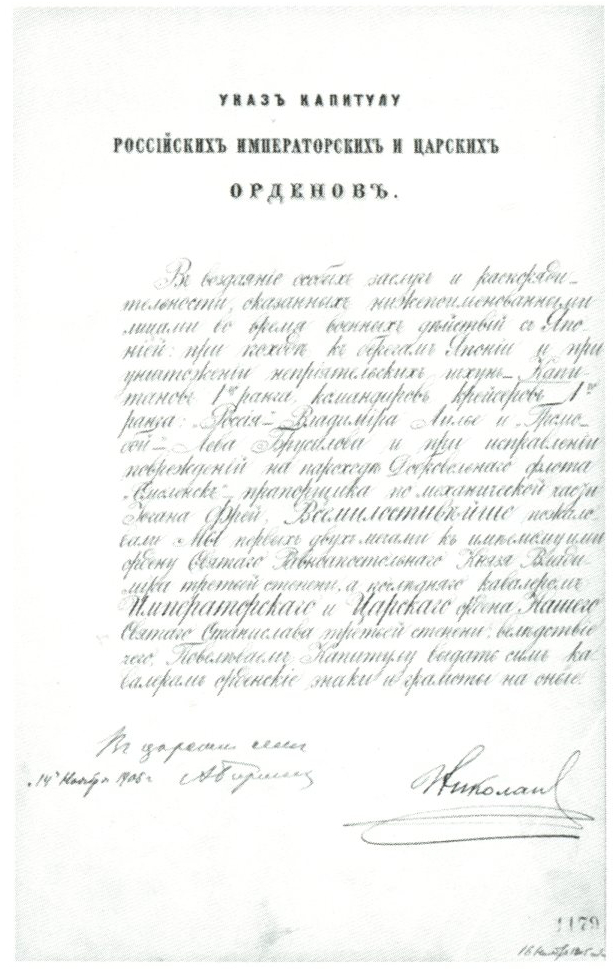 УКАЗЪ КАПИТУЛУ
РОССІЙСКИХЪ ИМПЕРАТОРСКИХЪ И ЦАРСКИХЪ
ОРДЕНОВЪ.
Въ воздаяніе особыхъ заслугъ и распоряди-
тельности, оказанныхъ нижепоименованными
лицами во время военныхъ дѣйствій съ Япо-
ніей: при походѣ къ берегамъ Японіи и при
уничтоженіи непріятельскихъ шхунъ - Капи-
тановъ 1го ранга, командировъ крейсеровъ 1го
ранга: „Россія" - Владиміра Лилье и „Громо-
бой" - Льва Брусилова и при исправленіи
поврежденій на пароходѣ Добровольнаго флота
„Смоленскъ" - прапорщика по механической части
Ивана Фрей, Всемилостивѣйше пожало-
вали МЫ первыхъ двухъ мечами къ имѣемому ими
ордену Святаго Равноапостольнаго Князя Влади-
міра третьей степени, а послѣдняго кавалеромъ
Императорскаго и Царскаго ордена Нашего
Святаго Станислава третьей степени, вслѣдствіе
чего, Повелѣваемъ Капитулу выдать симъ ка-
валерамъ орденскіе знаки и грамоты на оные.
Въ царскомъ селѣ
14 Ноября 1905 г. Николай
1179